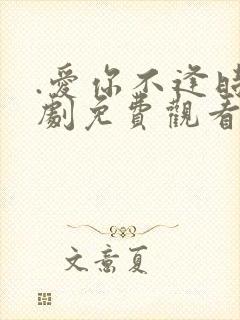 .愛你不逢時
劇免費觀看
文意夏